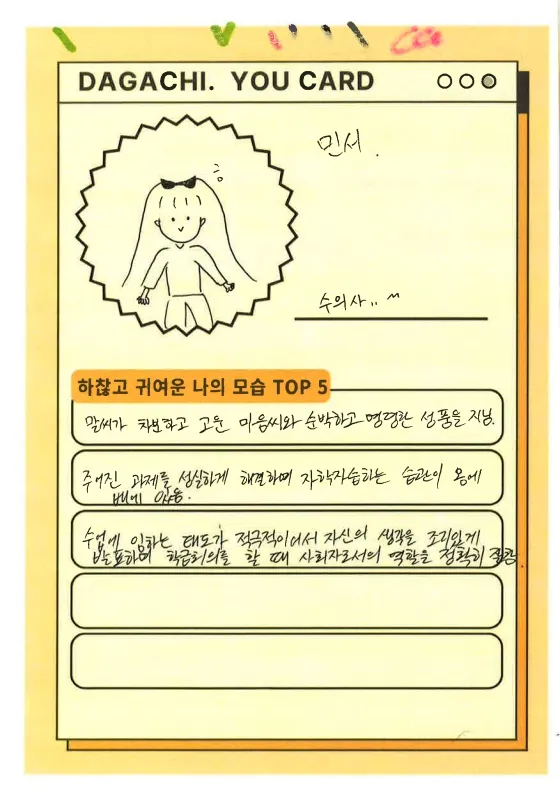 DAGACHI. YOU CARD
민서.
수의사.. ~
하찮고 귀여운 나의 모습 TOP 5
말씨가 차분하고 고운 마음씨와 순박하고 명랑한 성품을 지님.
주어진 과제를 성실하게 해결하며 자학자습하는 습관이 몸에
배어 있음.
수업에 임하는 태도가 적극적이어서 자신의 생각을 조리있게
발표하며 학급회의를 할 때 사회자로서의 역할을 정확히